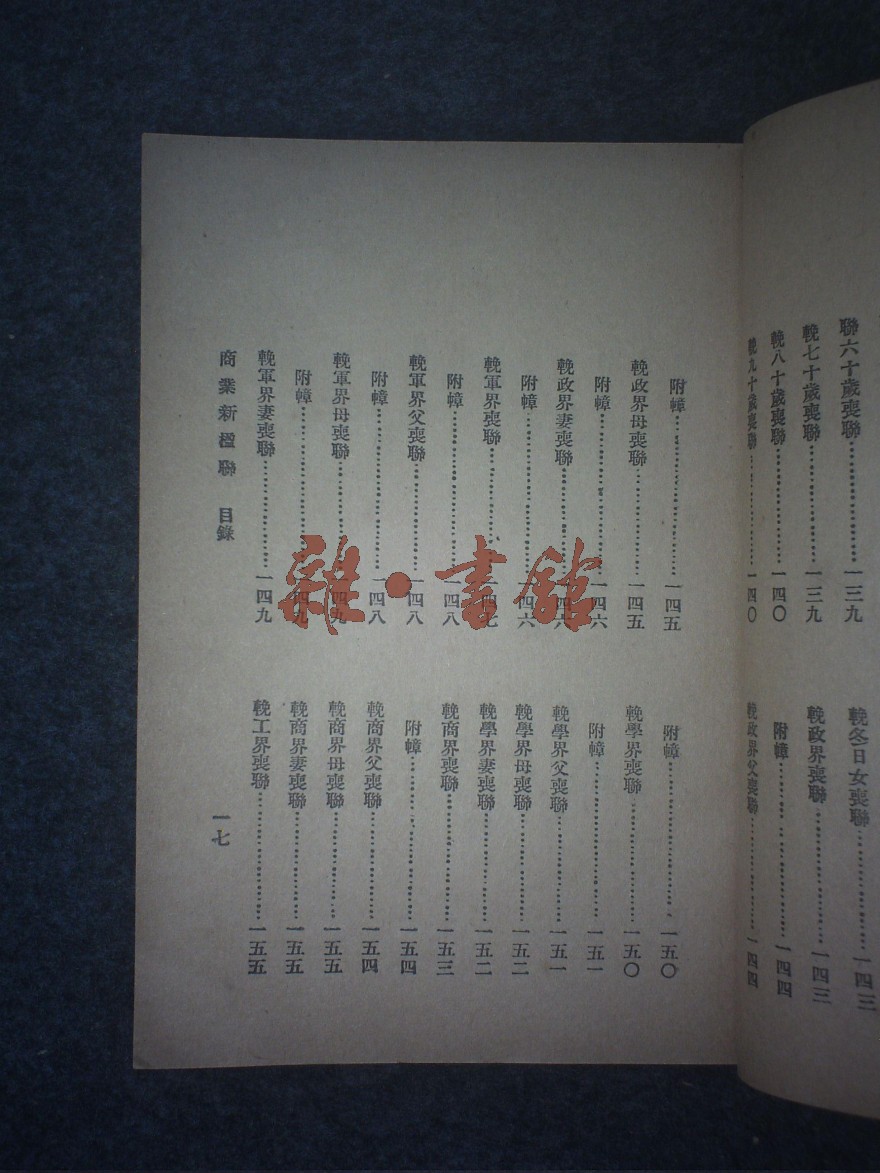 聯六十歲喪聯……………一三九
輓七十歲喪聯……………一三九
輓八十歲喪聯……………一四〇
輓九十歲喪聯……………一四〇
輓冬日女喪聯……………一四三
輓政界喪聯……………一四三
附幛……………一四四
輓政界父喪聯……………一四四
附幛……………一四五
輓政界母喪聯……………一四五
附幛……………一四六
輓政界妻喪聯……………一四六
附幛……………一四六
輓軍界喪聯……………一四七
附幛……………一四八
輓軍界父喪聯……………一四八
附幛……………一四八
輓軍界母喪聯……………一四九
附幛……………一四九
輓軍界妻喪聯……………一四九
附幛……………一五〇
輓學界喪聯……………一五〇
附幛……………一五一
輓學界父喪聯……………一五一
輓學界母喪聯……………一五二
輓學界妻喪聯……………一五二
輓商界喪聯……………一五三
附幛……………一五四
輓商界父喪聯……………一五四
輓商界母喪聯……………一五五
輓商界妻喪聯……………一五五
輓工界喪聯……………一五五
商業新楹聯 目錄 一七
雜·書館